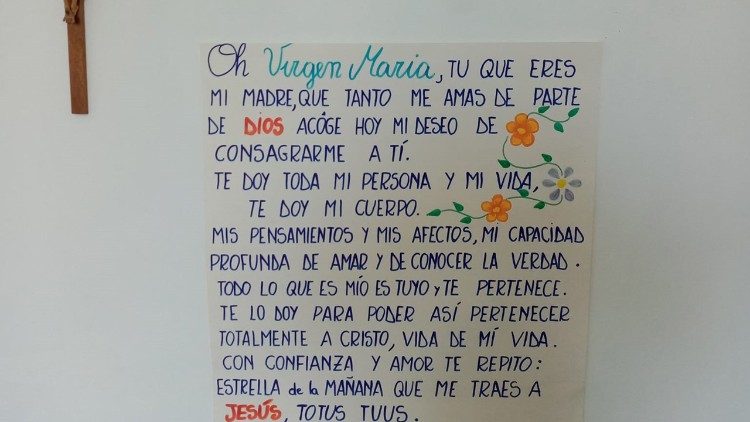 Oh Virgen María, TU QUE ERES
MI MADRE, QUE TANTO ME AMAS DE PARTE
DE DIOS ACÓGE HOY MI DESEO DE
CONSAGRARME A TÍ.
TE DOY TODA MI PERSONA Y MI VIDA,
TE DOY MI CUERPO.
MIS PENSAMIENTOS Y MIS AFECTOS, MI CAPACIDAD
PROFUNDA DE AMAR Y DE CONOCER LA VERDAD.
TODO LO QUE ES MÍO ES TUYO y TE PERTENECE.
TE LO DOY PARA PODER ASÍ PERTENECER
TOTALMENTE A CRISTO, VIDA DE MÍ VIDA.
CON CONFIANZA Y AMOR TE REPITO:
ESTRELLA de la MAÑANA QUE ME TRAES A
JESÚS, TOTUS TUUS.